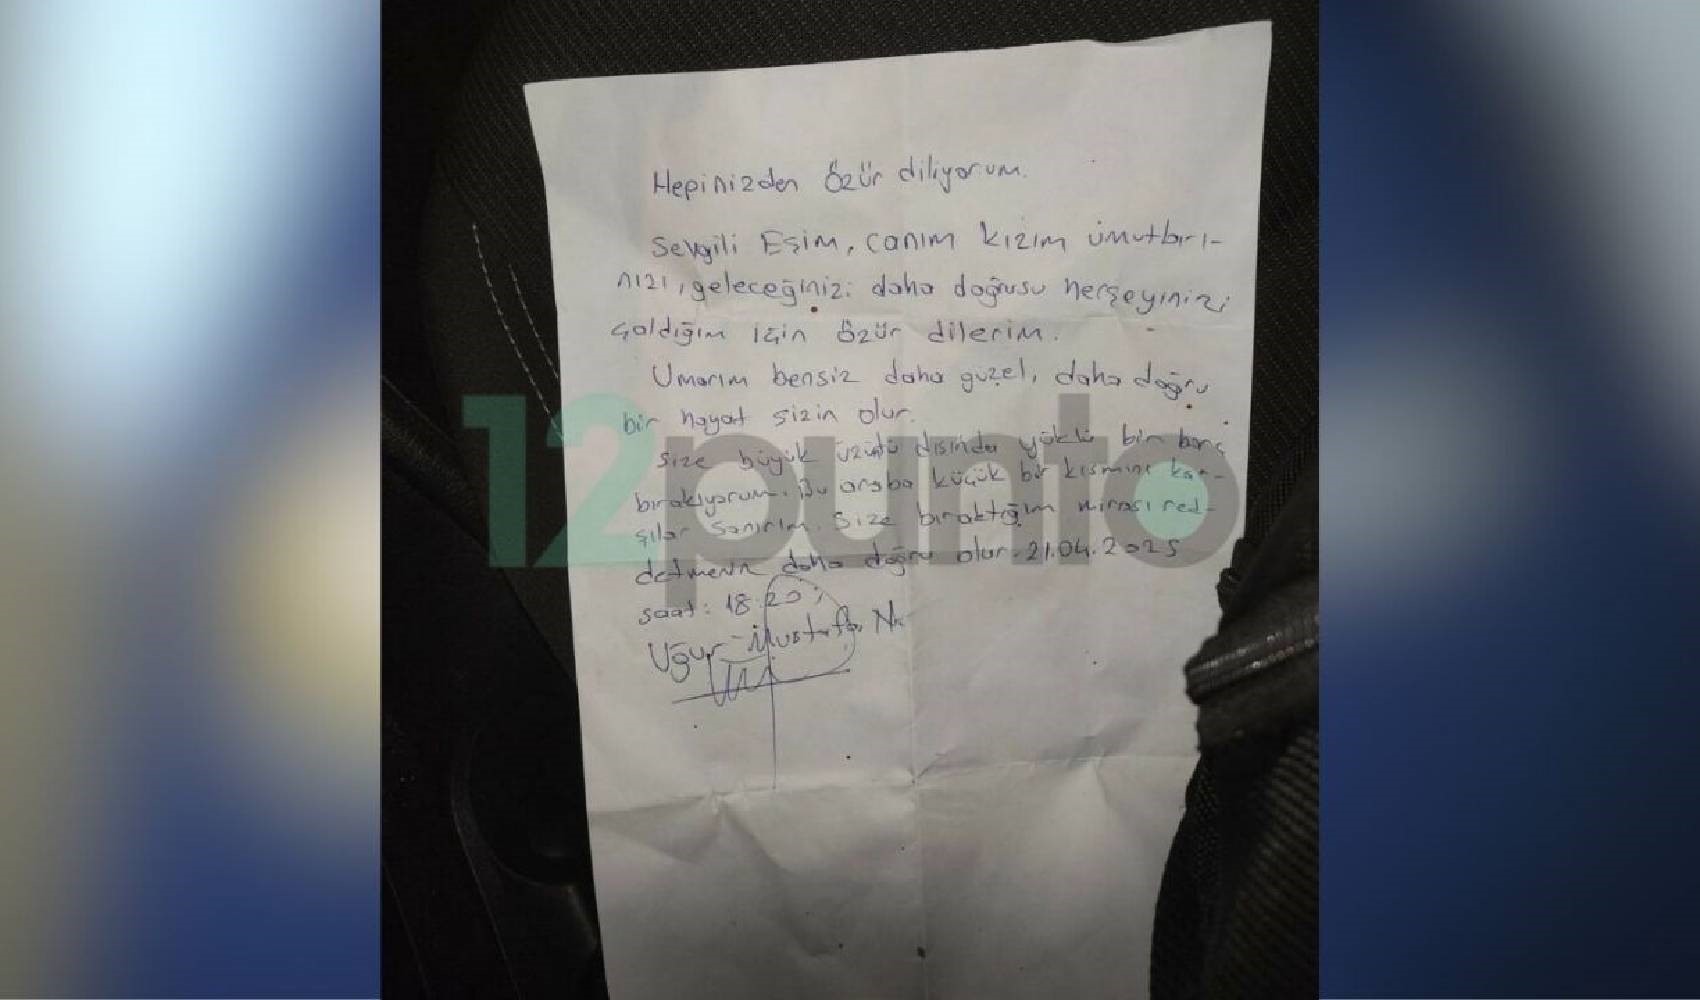 Hepinizden özür diliyorum.
Sevgili Eşim, canım kızım ümutları-
nızı, geleceğinizi daha doğrusu herşeyinizi
çaldığım için özür dilerim.
Umarım bensiz daha güzel, daha doğru
bir hayat sizin olur.
size büyük üzüntü dışında yüklü bir borç
bırakıyorum. Bu araba küçük bir kısmını kar-
şılar sanırım. size bıraktığım mirası red-
detmeniz daha doğru olur. 21.04.2025
saat: 18:20
Uğur Mustafa
12punto